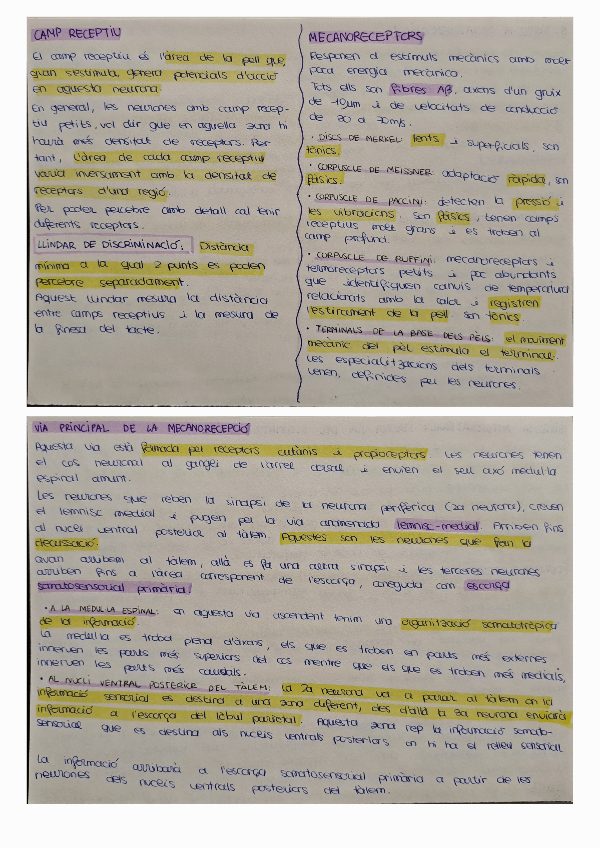 CAMP RECEPTIU
El camp receptiu és l'àrea de la pell que,
quan s'estimula, genera potencials d'acció
en aquesta neurona.
En general, les neurones amb camp recep-
tiu petits, vol dir que en aquella zona hi
haurà més densitat de receptors. Per
tant, l'àrea de cada camp receptiu
varia inversament amb la densitat de
receptors d'una regió.
Per poder percebre amb detall cal tenir
diferents receptors.
LLINDAR DE DISCRIMINACIÓ: Distància
mínima a la qual 2 punts es poden
percebre separadament.
Aquest llindar mesura la distància
entre camps receptius i la mesura de
la finesa del tacte.
MECANORECEPTORS
Responen a estímuls mecànics amb molt
poca energia mecànica.
Tots ells són fibres Aβ, axons d'un gruix
de ~10μm i de velocitats de conducció
de 30 a 70m/s.
· DISCS DE MERKEL: lents i superficials, són
tònics.
· CORPUSCLE DE MEISSNER: adaptació ràpida, són
fàsics.
· CORPUSCLE DE PACCINI: detecten la pressió i
les vibracions. Són fàsics, tenen camps
receptius molt grans i es troben al
camp profund.
· CORPUSCLE DE RUFFINI: mecanoreceptors i
termoreceptors petits i poc abundants
que identifiquen canvis de temperatura
relacionats amb la calor i registren
l'estirament de la pell. Són tònics.
· TERMINALS DE LA BASE DELS PÈLS: el moviment
mecànic del pèl estimula el terminal.
Les especialitzacions dels terminals
venen definides per les neurones.
VIA PRINCIPAL DE LA MECANORECEPCIÓ
Aquesta via està formada per receptors cutànis i propioceptors. Les neurones tenen
el cos neuronal al gangli de l'arrel dorsal i envien el seu axó medul·la
espinal amunt.
Les neurones que reben la sinapsi de la neurona perifèrica (2a neurona), creuen
el lemnisc medial i pugen per la via anomenada lemnisc-medial. Arriben fins
al nucli ventral posterior al tàlem. Aquestes són les neurones que fan la
decussació.
Quan arribem al tàlem, allà es fa una altra sinapsi i les terceres neurones
arriben fins a l'àrea corresponent de l'escorça, coneguda com escorça
somatosensorial primària.
· A LA MEDUL·LA ESPINAL: en aquesta via ascendent tenim una organització somatotròpica
de la informació.
La medul·la es troba plena d'axons, els que es troben en parts més externes
innerven les parts més superiors del cos mentre que els que es troben més medials,
innerven les parts més caudals.
· AL NUCLI VENTRAL POSTERIOR DEL TÀLEM: la 2a neurona va a parar al tàlem on la
informació sensorial es destina a una zona diferent, des d'allà la 3a neurona enviarà
informació a l'escorça del lòbul parietal. Aquesta zona rep la informació somato-
sensorial que es destina als nuclis ventrals posteriors on hi ha el relleu sensorial
La informació arribarà a l'escorça somatosensorial primària a partir de les
neurones dels nuclis ventrals posteriors del tàlem.